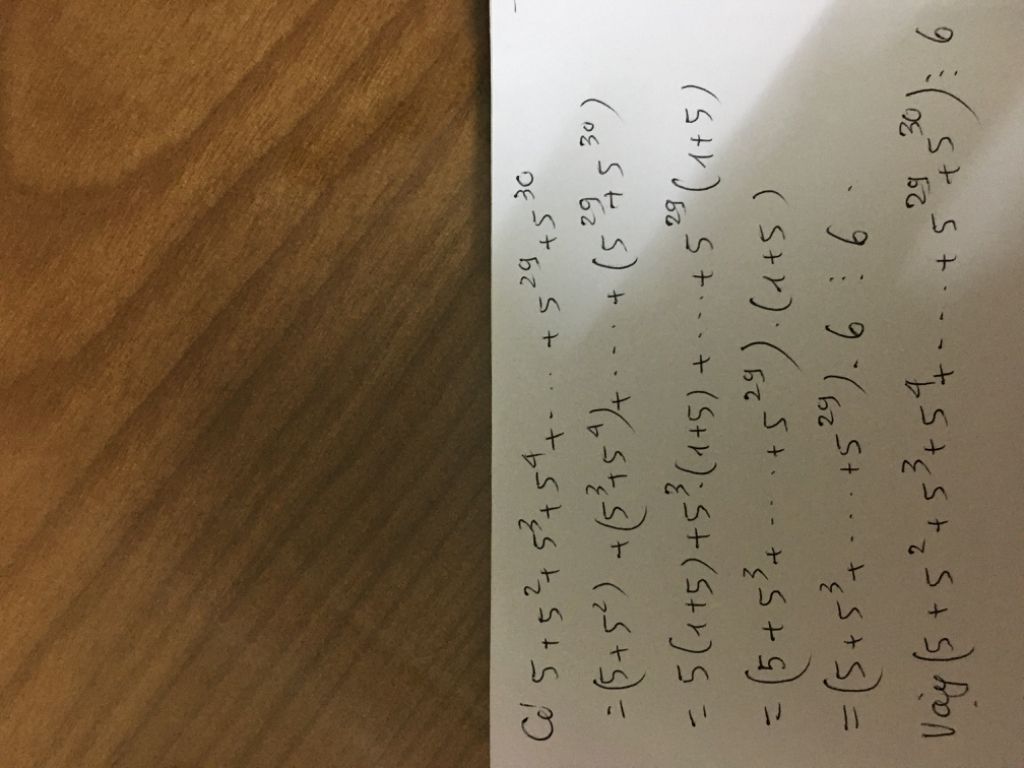 Có 5 + 5² + 5³ + 5⁴ + ... + 5²⁹ + 5³⁰
= (5 + 5²) + (5³ + 5⁴) + ... + (5²⁹ + 5³⁰)
= 5 (1+5) + 5³.(1+5) + ... + 5²⁹ (1+5)
= (5 + 5³ + .... + 5²⁹) . (1+5)
= (5 + 5³ + .... + 5²⁹) . 6 ⋮ 6 .
Vậy (5 + 5² + 5³ + 5⁴ + .... + 5²⁹ + 5³⁰) ⋮ 6